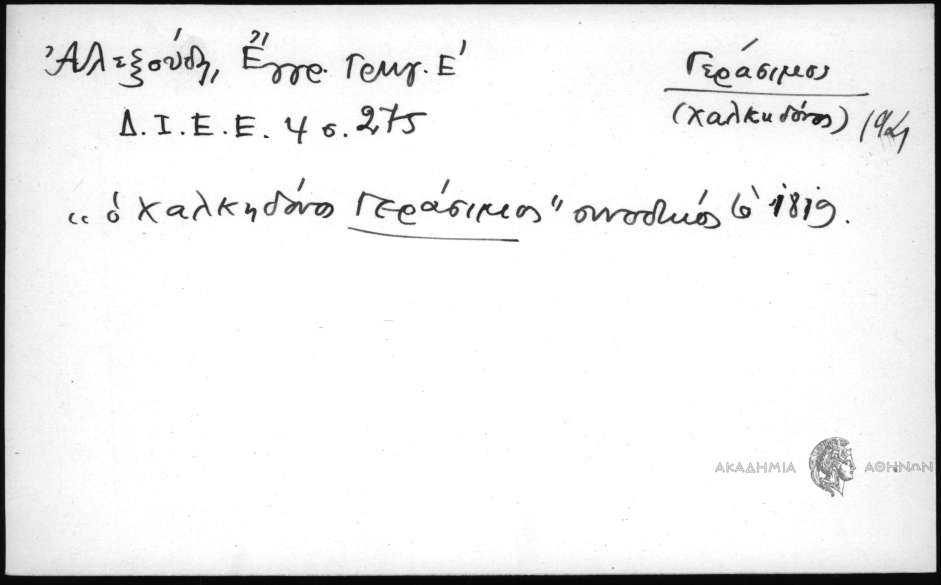 Ἀλεξούδη, Ἔγγρ. Γρηγ. Ε'
Γεράσιμος
Δ. Ι. Ε. Ε. 4 σ. 275
(Χαλκηδόνος)
"ὁ Χαλκηδόνος Γεράσιμος" συνοδικός 1819.
ΑΚΑΔΗΜΙΑ ΑΘΗΝΩΝ